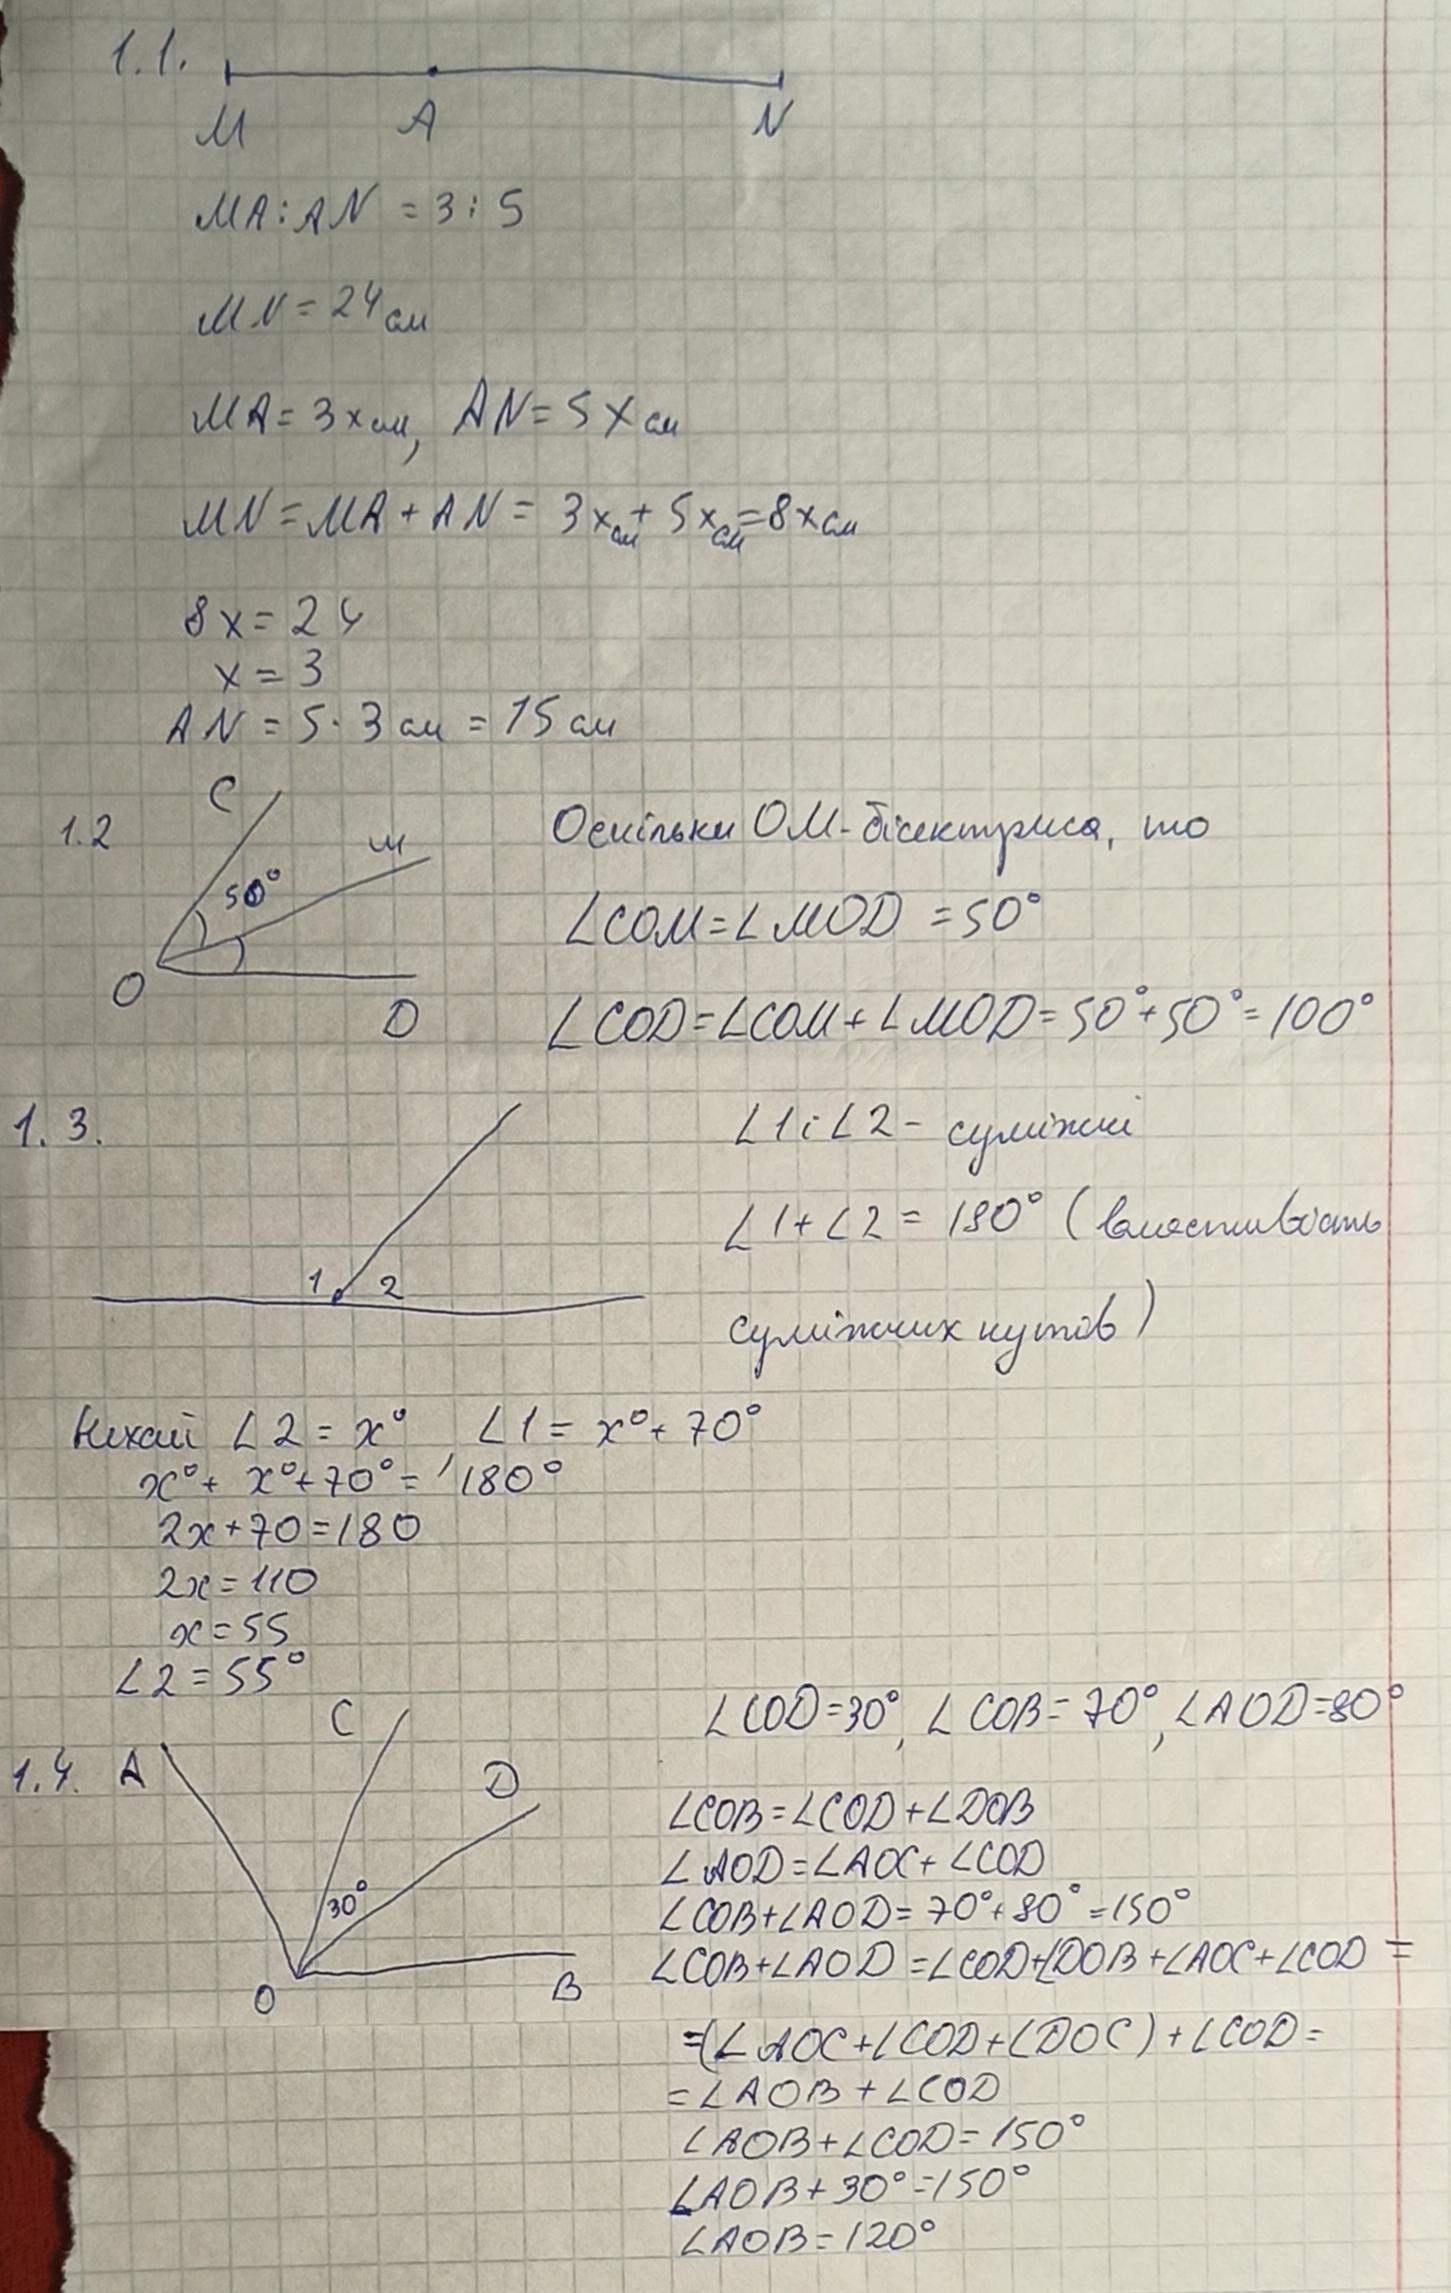 1.1.
M A N
MA:AN = 3:5
MN = 24 см
MA = 3x см, AN = 5x см
MN = MA + AN = 3x см + 5x см = 8x см
8x = 24
x = 3
AN = 5·3 см = 15 см
1.2
C
M
50°
O
D
Оскільки OM - бісектриса, то
∠COM = ∠MOD = 50°
∠COD = ∠COM + ∠MOD = 50° + 50° = 100°
1.3.
1 2
∠1 і ∠2 - суміжні
∠1 + ∠2 = 180° (властивість
суміжних кутів)
Нехай ∠2 = x° ∠1 = x° + 70°
x° + x° + 70° = 180°
2x + 70 = 180
2x = 110
x = 55
∠2 = 55°
1.4.
A
C
D
30°
O
B
∠COD = 30°, ∠COB = 70°, ∠AOD = 80°
∠COB = ∠COD + ∠DOB
∠AOD = ∠AOC + ∠COD
∠COB + ∠AOD = 70° + 80° = 150°
∠COB + ∠AOD = ∠COD + ∠DOB + ∠AOC + ∠COD =
= (∠AOC + ∠COD + ∠DOC) + ∠COD =
= ∠AOB + ∠COD
∠AOB + ∠COD = 150°
∠AOB + 30° = 150°
∠AOB = 120°